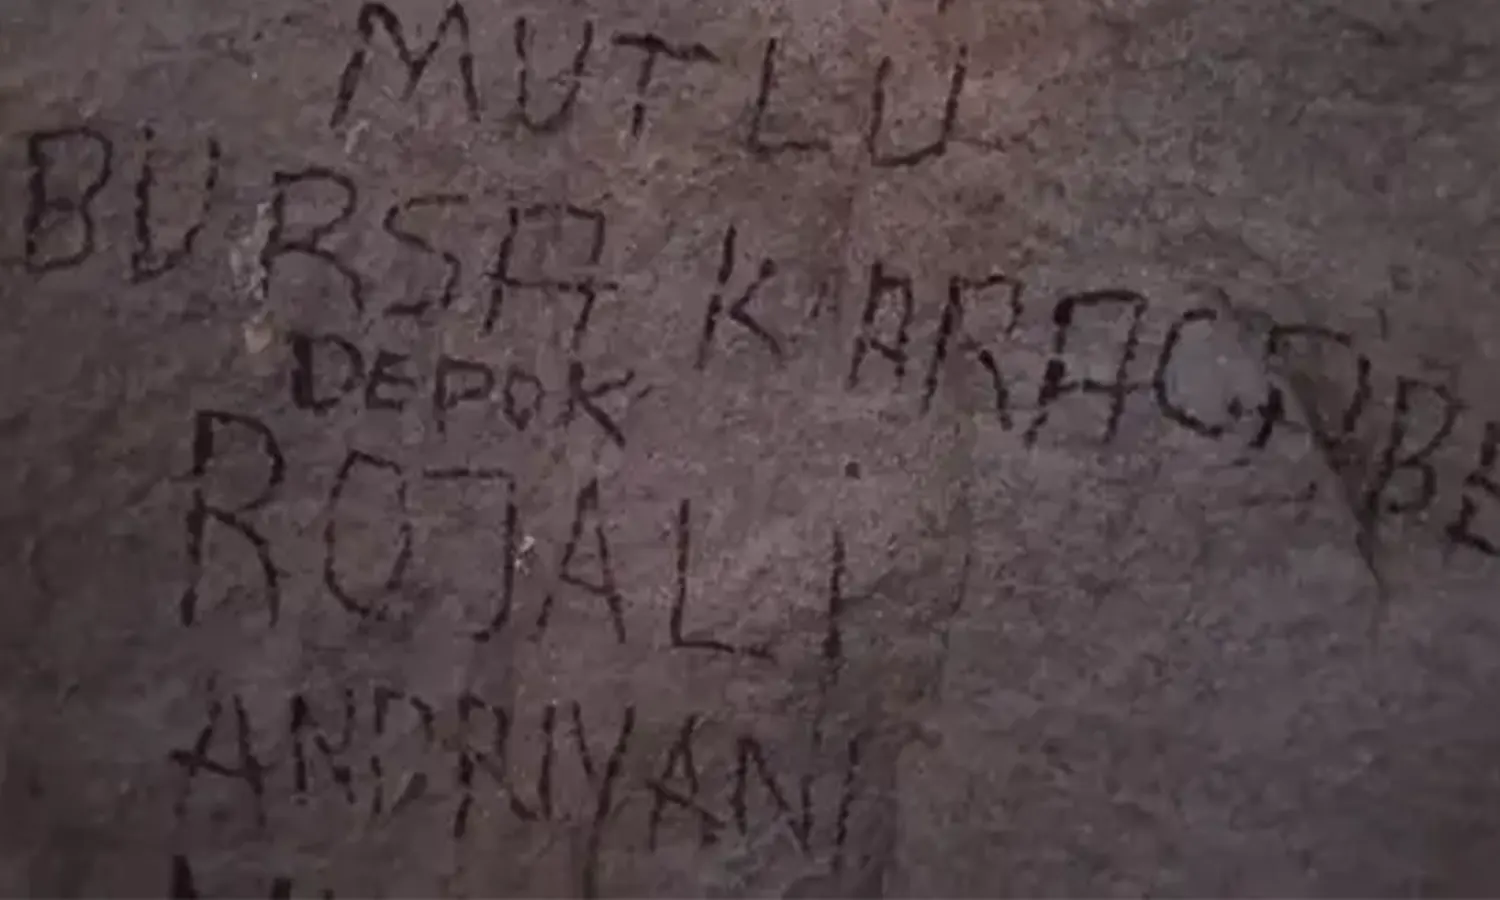 MUTLU
BURSA KARACABE
DEPOK
ROJALI
ANDRIYANI